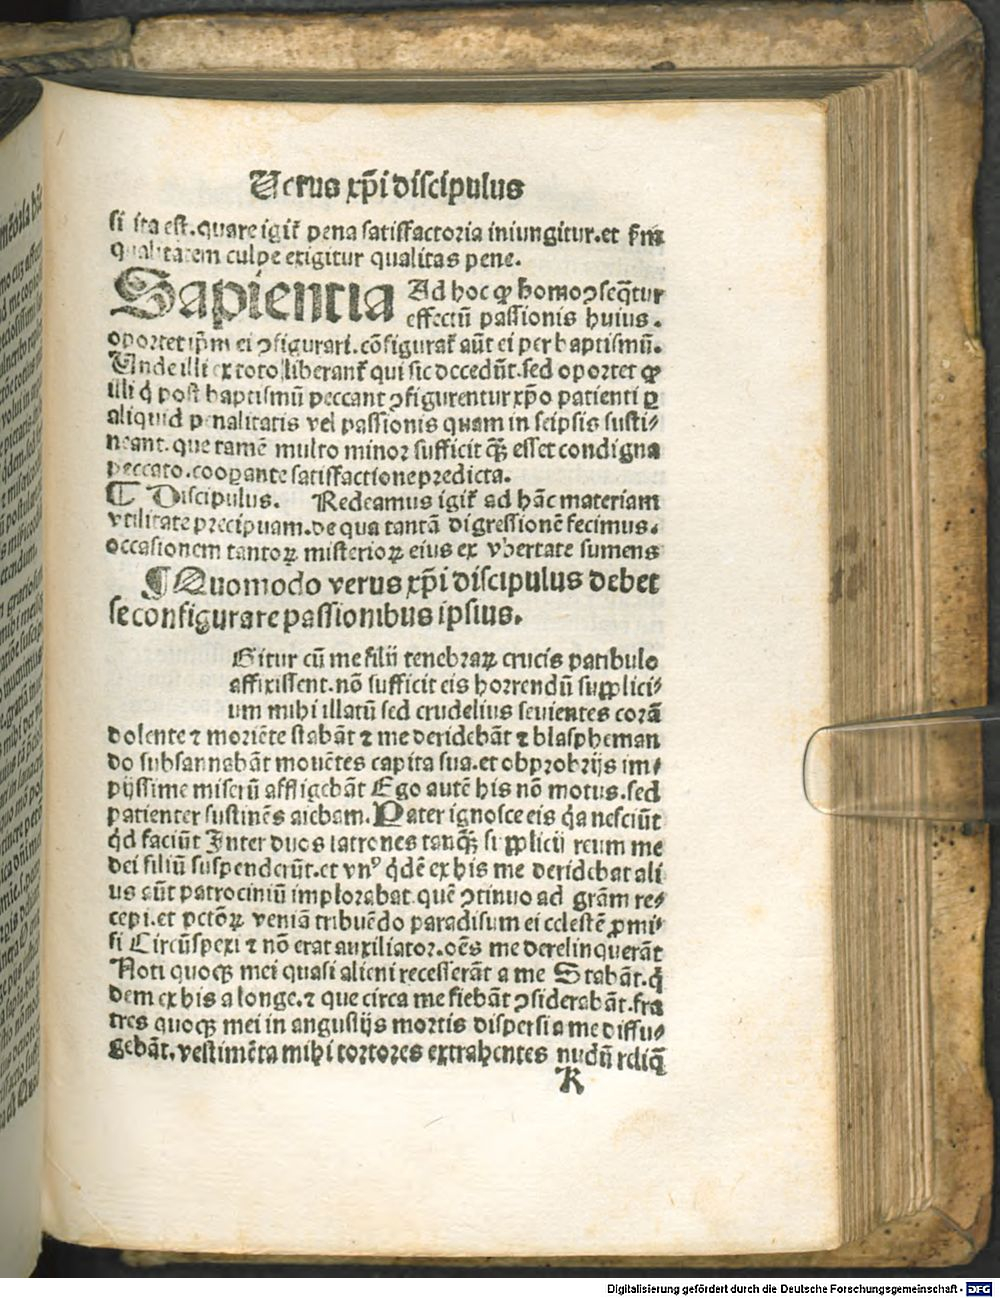 Verus xp̄i discipulus
si ita est. quare igit̃ pena satisfactoria iniungitur. et fm̃
qualitatem culpe exigitur qualitas pene.
Sapientia Ad hoc ꝙ homo ꝯseq̃tur
effectū passionis huius.
oportet ip̄m ei ꝯfigurari. cōfigurat̃ aūt ei per baptismū.
Unde illi ex toto liberant̃ qui sic decedūt. sed oportet ꝙ
illi q̇ post baptismū peccant ꝯfigurentur xp̄o patienti ꝑ
aliquid penalitatis vel passionis quam in seipsis susti⸗
neant. que tamē multo minor sufficit q̄ꝫ esset condigna
peccato. cooꝑante satisfactione predicta.
¶ Discipulus. Redeamus igit̃ ad hāc materiam
vtilitate precipuam. de qua tantā digressionē fecimus.
occasionem tantoꝝ misterioꝝ eius ex vbertate sumens
¶ Quomodo verus xp̄i discipulus debet
se configurare passionibus ipsius.
Gitur cū me filii tenebraꝝ crucis patibulo
affixissent. nō sufficit eis horrendū supplici⸗
um mihi illatū sed crudelius seuientes corā
dolente ⁊ moriēte stabāt ⁊ me deridebāt ⁊ blaspheman
do subsannabāt mouētes capita sua. et obprobrijs im⸗
pijssime miserū affligebāt Ego autē his nō motus. sed
patienter sustinēs aiebam. Pater ignosce eis q̇a nesciūt
q̇d faciūt Inter duos latrones tanq̄ꝫ supplicij reum me
dei filiū suspenderūt. et vnꝰ q̇dē ex his me deridebat ali
us aūt patrociniū implorabat. quē ꝯtinuo ad grām re⸗
cepi. et pctōꝝ veniā tribuēdo paradisum ei celestē ꝓmi⸗
si Circūspexi ⁊ nō erat auxiliator. oēs me derelinquerāt
Noti quoqꝫ mei quasi alieni recesserāt a me Stabāt. q̇
dem ex his a longe. ⁊ que circa me fiebāt ꝯsiderabāt. fra
tres quoqꝫ mei in angustijs mortis dispersi a me diffu⸗
gebāt. vestimēta mihi tortores extrahentes nudū reliq̄
K
Digitalisierung gefördert durch die Deutsche Forschungsgemeinschaft - DFG